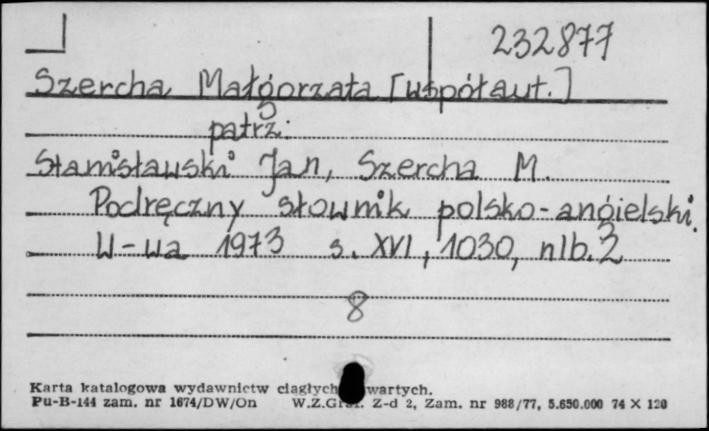 232877
Szercha Małgorzata [współaut.]
patrz:
Stanisławski Jan, Szercha M.
Podręczny słownik polsko-angielski.
W-wa 1973 s. XVI, 1030, nlb. 2
8
Karta katalogowa wydawnictw ciągłych wartych.
Pu-B-144 zam. nr 1674/DW/On W.Z.Graf. Z-d 2, Zam. nr 988/77, 5.650.000 74 X 120